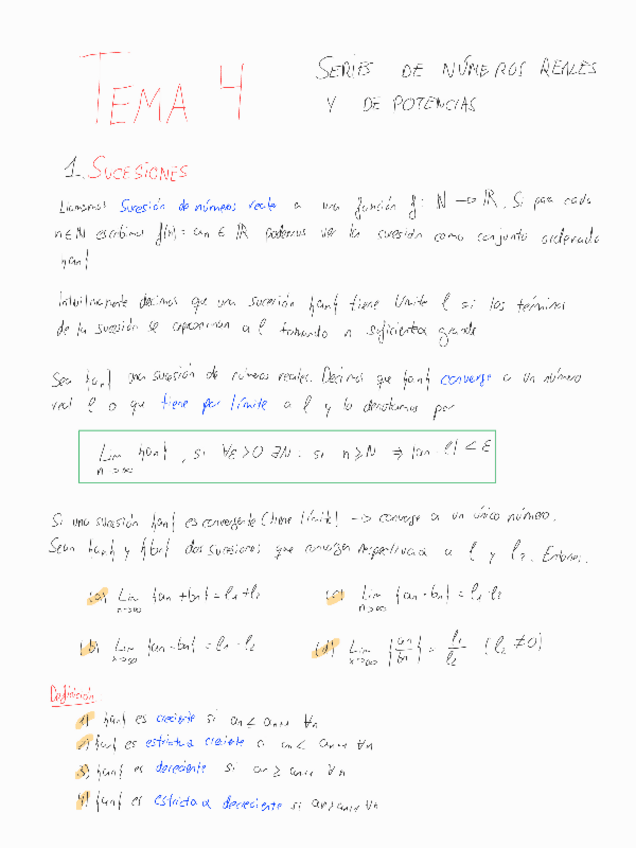 TEMA 4
SERIES DE NÚMEROS REALES
Y DE POTENCIAS
1. SUCESIONES
Llamamos Sucesión de números reales a una función f: ℕ → ℝ. Si para cada
n ∈ ℕ escribimos f(n) = an ∈ ℝ podemos ver la sucesión como conjunto ordenado
{an}
Intuitivamente decimos que una sucesión {an} tiene límite l si los términos
de la sucesión se aproximan a l tomando n suficiente grande
Sea {an} una sucesión de números reales. Decimos que {an} converge a un número
real l o que tiene por límite a l y lo denotamos por
Lim n→∞ {an}, si ∀ε>0 ∃N : si n ≥ N ⇒ |an - l| < ε
Si una sucesión {an} es convergente (tiene límite) → converge a un único número.
Sean {an} y {bn} dos sucesiones que convergen respectiva a l y l2. Entonces:
(a) Lim n→∞ {an + bn} = l1 + l2
(c) Lim n→∞ {an · bn} = l1 · l2
(b) Lim x→∞ {an - bn} = l1 - l2
(d) Lim x→∞ {an/bn} = l1/l2 (l2 ≠ 0)
Definición.
1) {an} es creciente si an ≤ an+1 ∀n
2) {an} es estricta creciente si an < an+1 ∀n
3) {an} es decreciente si an ≥ an+1 ∀n
4) {an} es estricta decreciente si an > an+1 ∀n